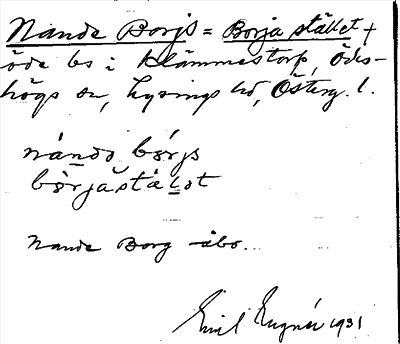 Nande Borjs = Borja stället +
öde bs i Klämmestorp, Ödes-
högs sn, Lysings hd, Österg. l.
nándo bórjs
bòrjastálot
Nande Borg åbo.
Emil Engnér 1931